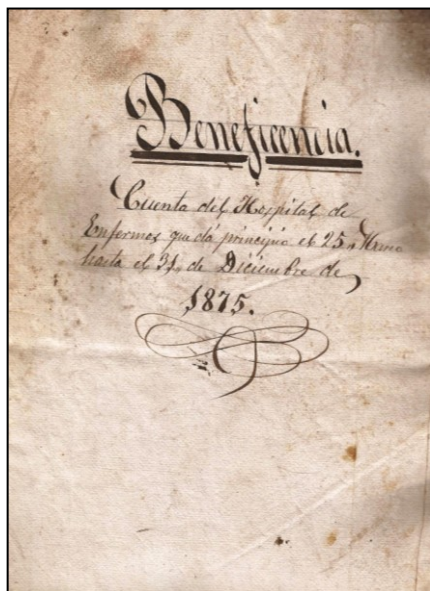 Beneficencia.
Cuenta del Hospital de
Enfermos que dá principio el 25
hasta el 31, de Diciembre de
1875.